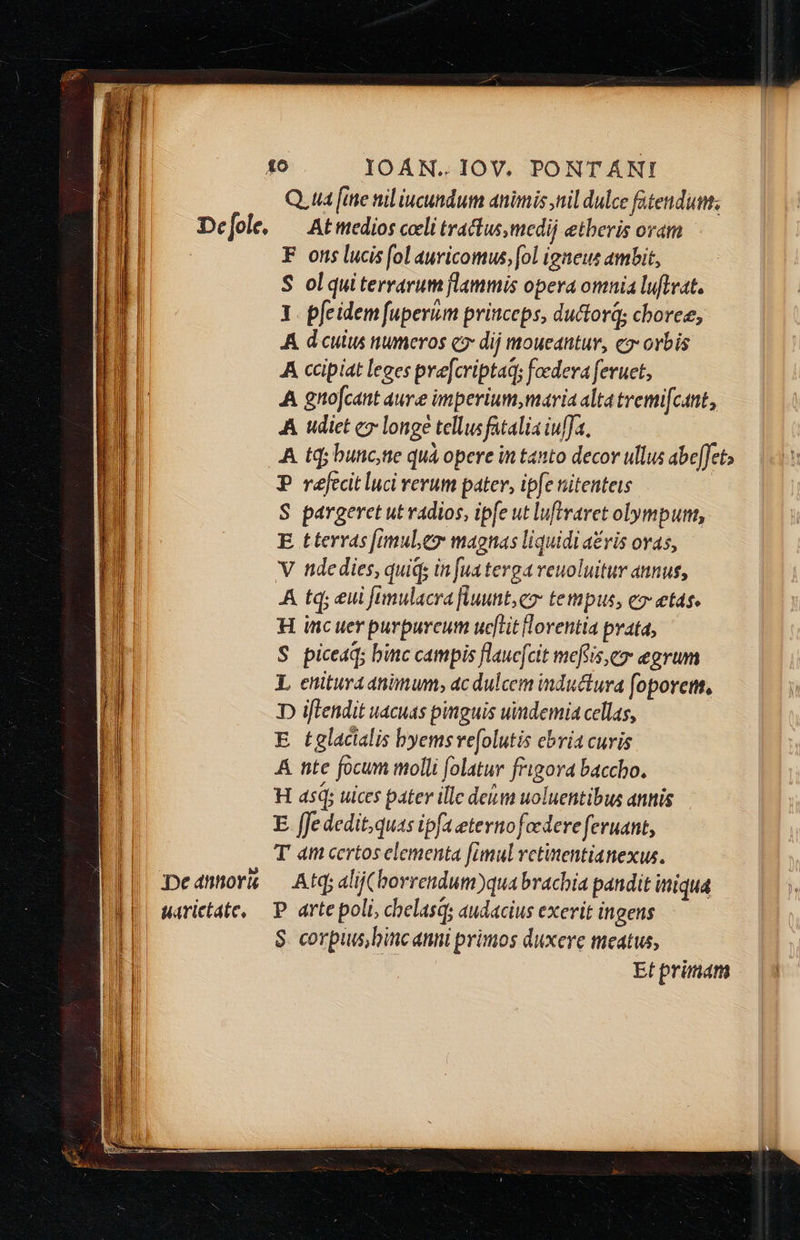 10 IOAN. IOV. PONTANI
Q ua sine nil iucundum animis, nil dulce fatendum;
De sole. At medios cœli tractus, medij ætheris oram
F ons lucis sol auricomus, sol igneus ambit,
S ol qui terrarum flammis opera omnia lustrat.
I pse idem superûm princeps, ductorq́; choreæ,
A d cuius numeros & dij moueantur, & orbis
A ccipiat leges præscriptaq́; fœdera seruet,
A gnoscant auræ imperium, maria alta tremiscant,
A udiet & longè tellus fatalia iussa,
A tq; hunc, ne quà opere in tanto decor ullus abesset,
P ræfecit luci rerum pater, ipse nitenteis
S pargeret ut radios, ipse ut lustraret olympum,
E t terras simul, & magnas liquidi aëris oras,
V nde dies, quiq́; in sua terga reuoluitur annus,
A tq; æui simulacra fluunt, & tempus, & ætas.
H inc uer purpureum uestit florentia prata,
S piceaq́; hinc campis flauescit meßis, & ægrum
L enitura animum, ac dulcem inductura soporem,
D istendit uacuas pinguis uindemia cellas,
E t glacialis hyems resolutis ebria curis
A nte focum molli solatur frigora baccho.
H asq́; uices pater ille deûm uoluentibus annis
E sse dedit, quas ipsa æterno fœdere seruant,
T am certos elementa simul retinentia nexus.
De annorū uarietate. Atq; alij (horrendum) qua brachia pandit iniqua
P arte poli, chelasq́; audacius exerit ingens
S corpius, hinc anni primos duxere meatus,
Et primam